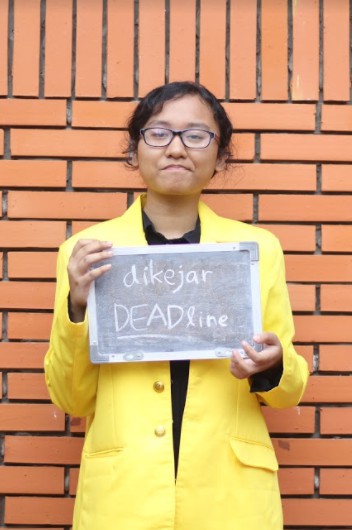 dikejar
DEADline